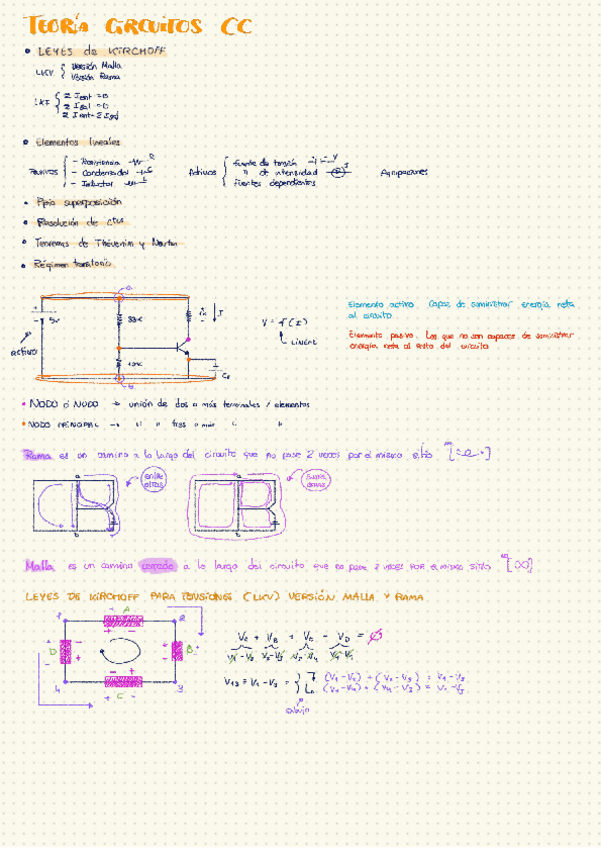 TEORÍA CIRCUITOS CC
LEYES de KIRCHOFF
LKV { Versión Malla
Versión Rama
LKI { Σ Ient = 0
Σ Isal = 0
Σ Ient = Σ Isal
Elementos lineales
Pasivos { - Resistencia R
- Condensador C
- Inductor L
Activos { Fuente de tensión V
" de intensidad I
Fuentes dependientes
Agrupaciones
Ppio superposición
Resolución de ctos
Teoremas de Thévenin y Norton
Régimen transitorio
a
5v
33K
I
activo
10K
b
V = f(I)
LINEAL
Elemento activo. Capaz de suministrar energía neta
al circuito
Elemento pasivo. Los que no son capaces de suministrar
energía neta al resto del circuito
NODO ó NUDO → unión de dos o más terminales / elementos
NODO PRINCIPAL → " " tres o más " "
Rama es un camino a lo largo del circuito que no pase 2 veces por el mismo sitio
entre
a
b
a
b
Malla es un camino cerrado a lo largo del circuito que no pase 2 veces POR EL MISMO SITIO
LEYES DE KIRCHOFF PARA TENSIONES (LKV) VERSIÓN MALLA Y RAMA
1 A 2
D B
4 C 3
V13 ≡ V1 - V3 =
(V1 - V2) + (V2 - V3) = V1 - V3
(V1 - V4) + (V4 - V3) = V1 - V3
dibujo